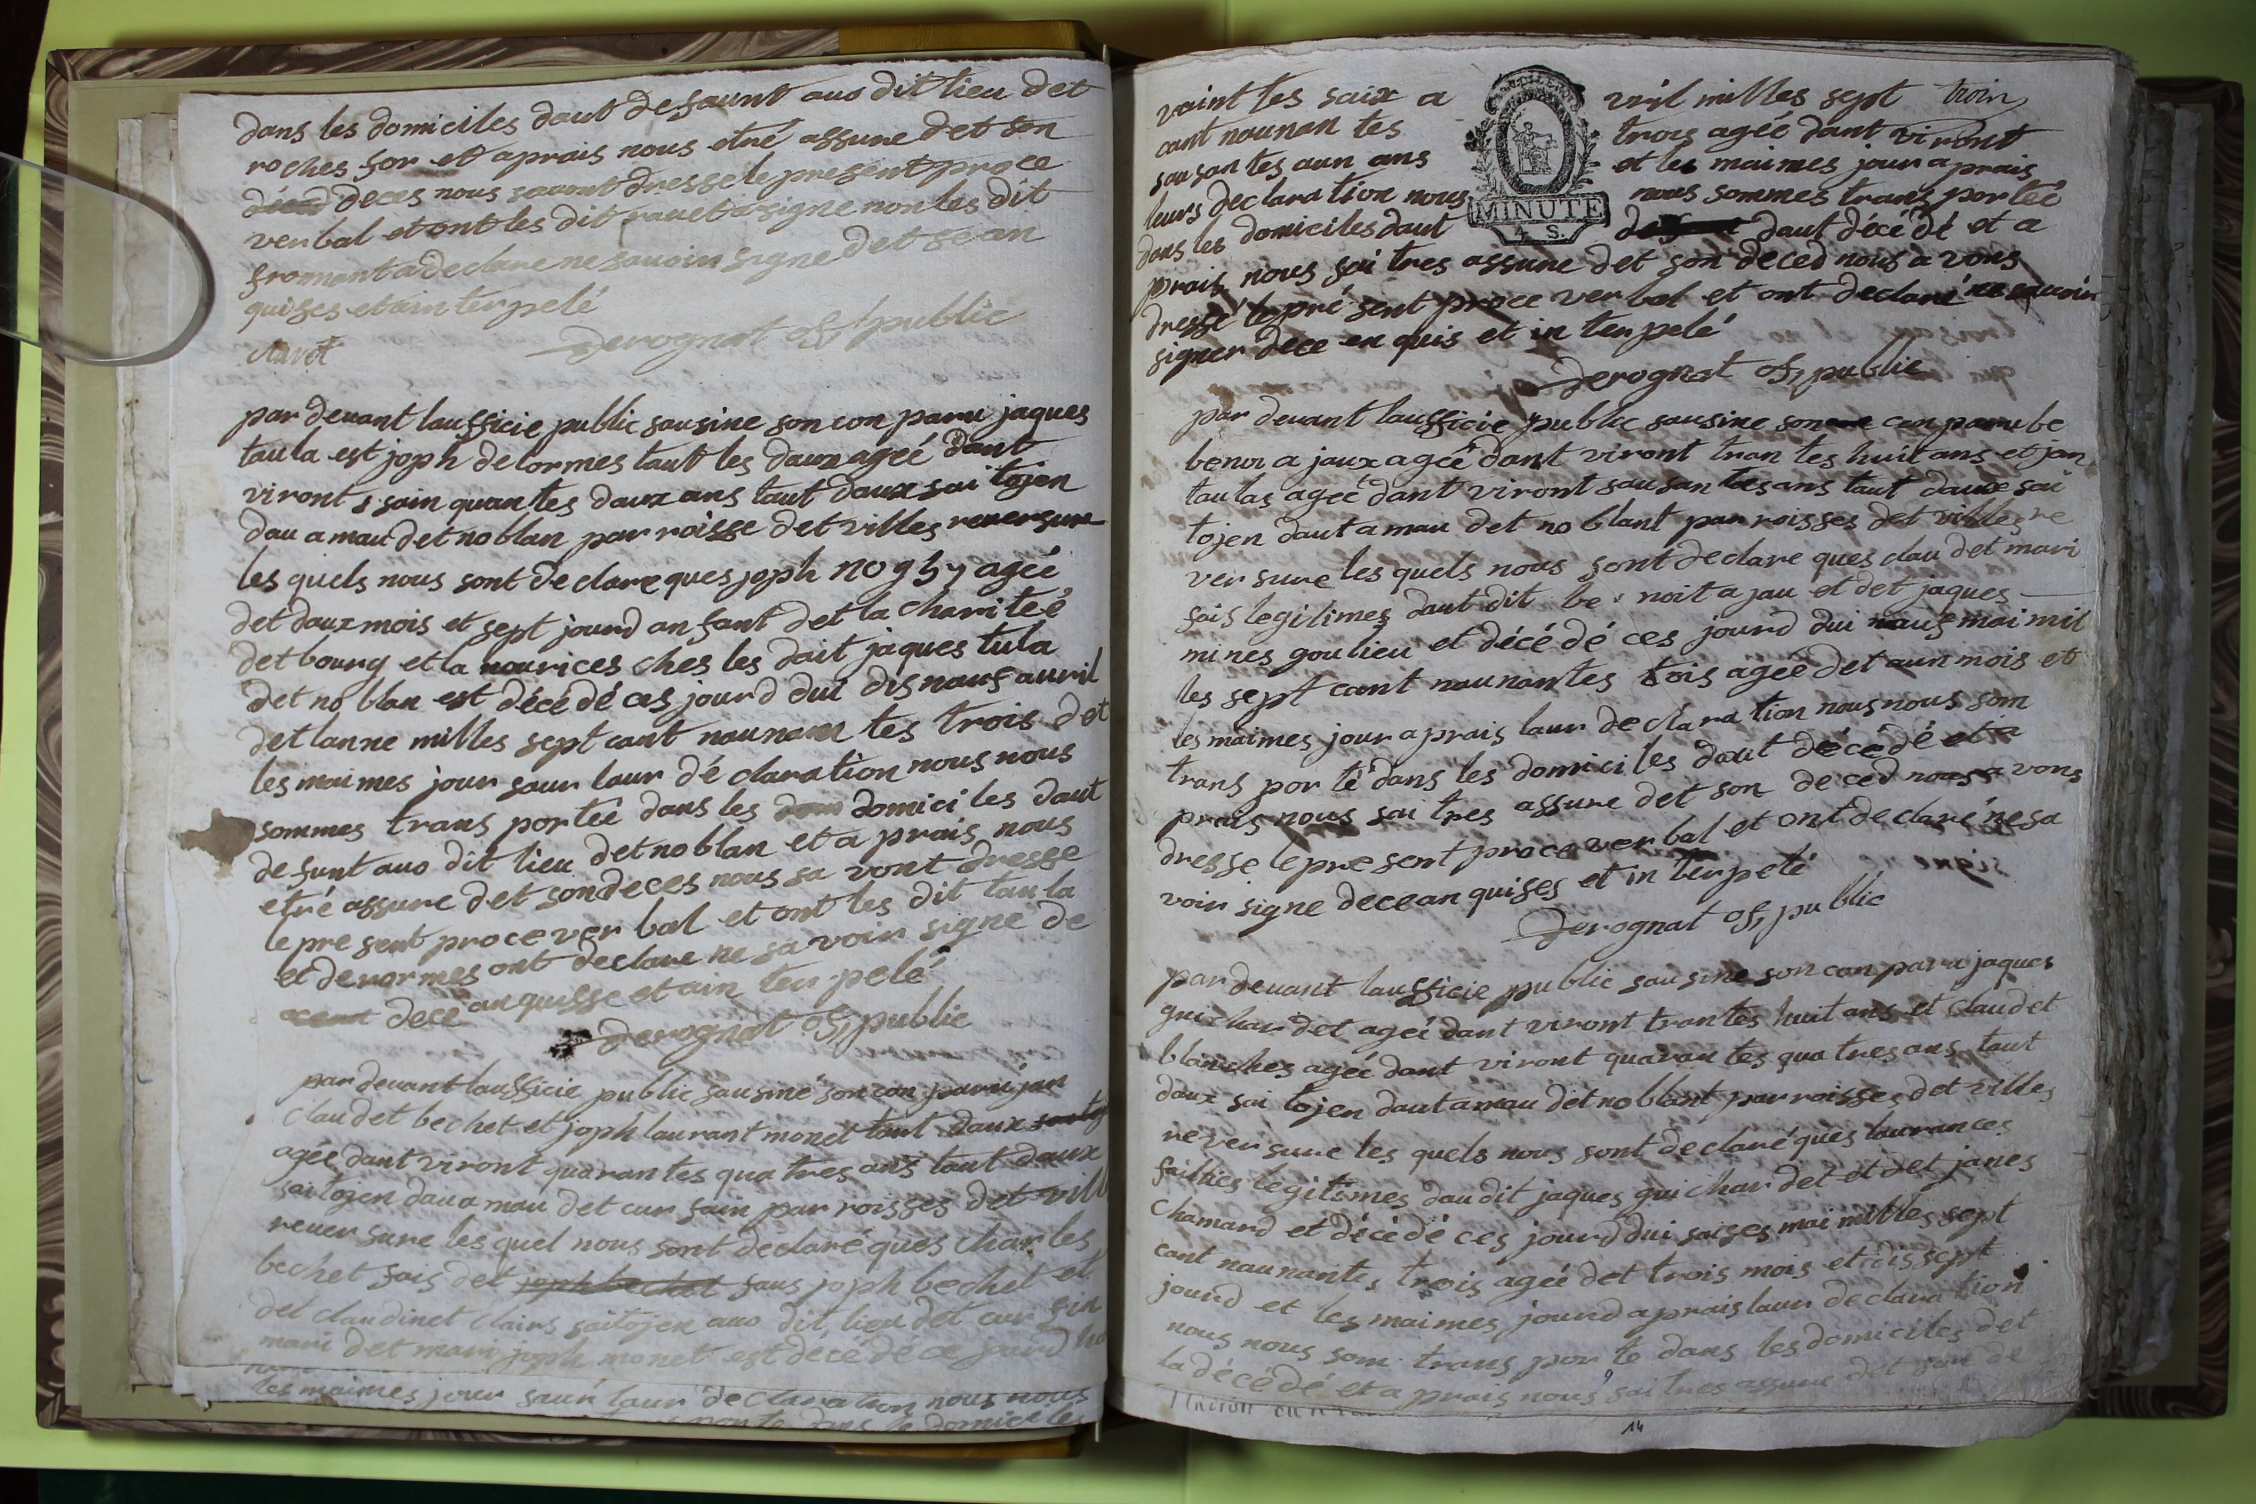 dans les domiciles daut defaunt auo dit lieu det
roches for et aprais nous etré assure det son
deces nous savont dresse le present proce
verbal et ont les dit ravet a signe non les dit
fromont a declare ne savoir signe det se an
quises et ain terpelé
derognat off public
par devant laufficie public sausine son con paru jaques
taula est joph delormes taut les daux ageé dant
viront sain quantes daux ans taut daux sai tojen
dau a mau det noblan par roisse det villes reversure
les quels nous sont declare ques joph no 957 ageé
det daux mois et sept jourd an fant det la chariteé
det bourg et la nourices ches les dait jaques tula
det no blan est décé dé ces jourd dui dis nauf avril
det lanne milles sept cant nounan tes trois det
les maimes jour saur laur dé claration nous nous
sommes trans porteé dans les domici les daut
defunt auo dit lieu det noblan et a prais nous
etré assure det sondeces nous sa vont dresse
le pre sent proce ver bal et ont les dit taula
et derormes ont declare ne sa voir signe de
dece an quisse et ain ter pelé
derognat off public
par devant laufficie public sausiné son con paru jan
claudet bechet et joph laurant monet taut daux
ageé dant viront quarantes qua tres ans taut daux
sai tojen dau a mau det cur fain par roisses det vill
rever sure les quel nous sont declaré ques charles
bechet fais det joph bechet faus joph bechet et
det claudinet clairs saitojen auo dit lieu det cur fin
mari det mari joph monet est decé dé ce jourd hu
les maimes jour saur laur declaration nous nous
dans le domiciles
vaint tes saix a vril milles sept troin
cant nounan tes trois ageé dant viront
sousantes aun ans et les maimes jour a prais
leurs declaration nous nous sommes trans porteé
dans les domiciles daut daut décé dé et a
prais nous sai tres assure det son deced nous a vons
dressé le pré sent proce ver bal et ont declaré ne savoir
signer dece en quis et in terpelé
MINUTE
4. S.
derognat off public
par devant laufficie public sausine son con paru be
benoi a jaux ageé dant viront tran tes huit ans et jan
taulas ageé dant viront sausan tes ans taut daux sai
tojen daut a mau det no blant par roisses det villes re
ver sure les quels nous sont declare ques clau det mari
fais legitimes daut dit be noit a jau et det jaques
mines goulieu et décé dé ces jourd dui naus mai mil
les sept cant nounantes trois ageé det aun mois et
les maimes jour aprais laur declara tion nous nous som
trans por té dans les domici les daut décé dé et a
prais nous sai tres assure det son deced nous a vons
dresse le pre sent proce ver bal et ont declaré ne sa
voir signe dece an quises et in terpelé
derognat off public
par devant laufficie public sausine son con paru jaques
gui char det ageé dant viront trantes huit ans et claudet
blanches ageé dant viront quaran tes qua tres ans taut
daux sai tojen daut a mau det no blant par roisses det villes
re ver sure les quels nous sont declaré ques laurances
failties legitimes dau dit jaques gui char det et det janes
chamard et décé dé ces jourd dui saises mai milles sept
cant naunantes trois ageé det trois mois et dis sept
jourd et les maimes jourd aprais laur declara tion
nous nous som trans por te dans les domiciles det
la décé dé et a prais nous sai tres assure det son de
14